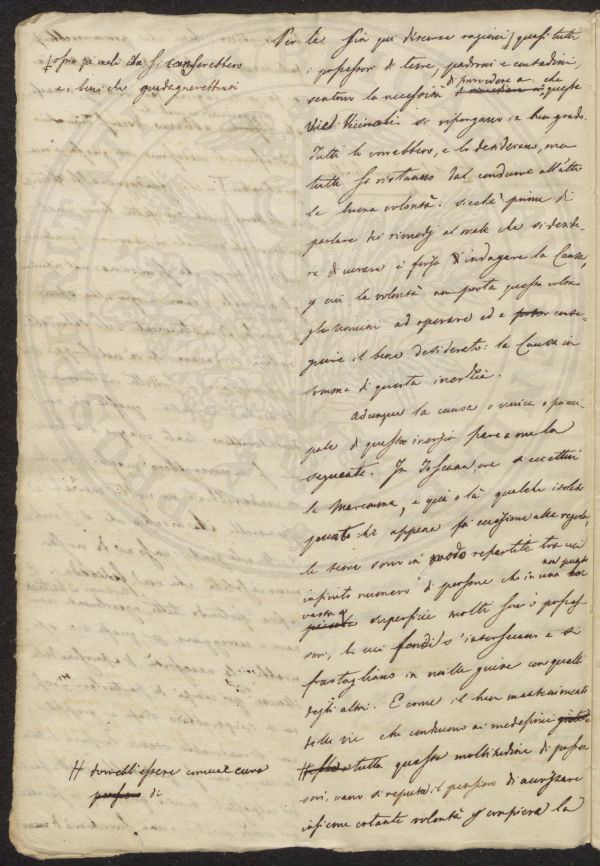 Per le fin qui discorse ragioni quasi tutti
i professori di terre, padroni e contadini,
sentono la necessità di provvedere a che queste
Vie Vicinali si ripongano in buon grado.
Tutti lo vorrebbero, e lo desiderano, ma
tutti si ristanno dal condurre all'atto
la buona volontà: sicché prima di
parlare dei rimedj al male che si deside-
ra di curare è forza d'indagare la Causa,
per cui la volontà non porta questa volta
gli uomini ad operare ed a conse-
guire il bene desiderato: la Causa in
somma di questa inerzia.
Adunque la causa o unica o princi-
pale di questa inerzia pare a me la
seguente. In Toscana, ove si eccettui
la Maremma, e qua e là qualche isolato
punto che appena fa eccezione alla regola,
le terre sono in modo repartite tra un
infinito numero di persone che in una non punto
vasta superficie molti sono i posses-
sori, le cui fondi s'intersecano e si
frastagliano in mille guise con quelli
degli altri. E come il buon mantenimento
delle vie che conducono ai medesimi
tutta questa moltitudine di posses-
sori, vano si reputa il pensiero di aunizzare
insieme cotante volontà per compiere la
ossia pei mali che si canserebbero
e i beni che guadagnerebbonsi
# dovrebb'essere comune cura
di